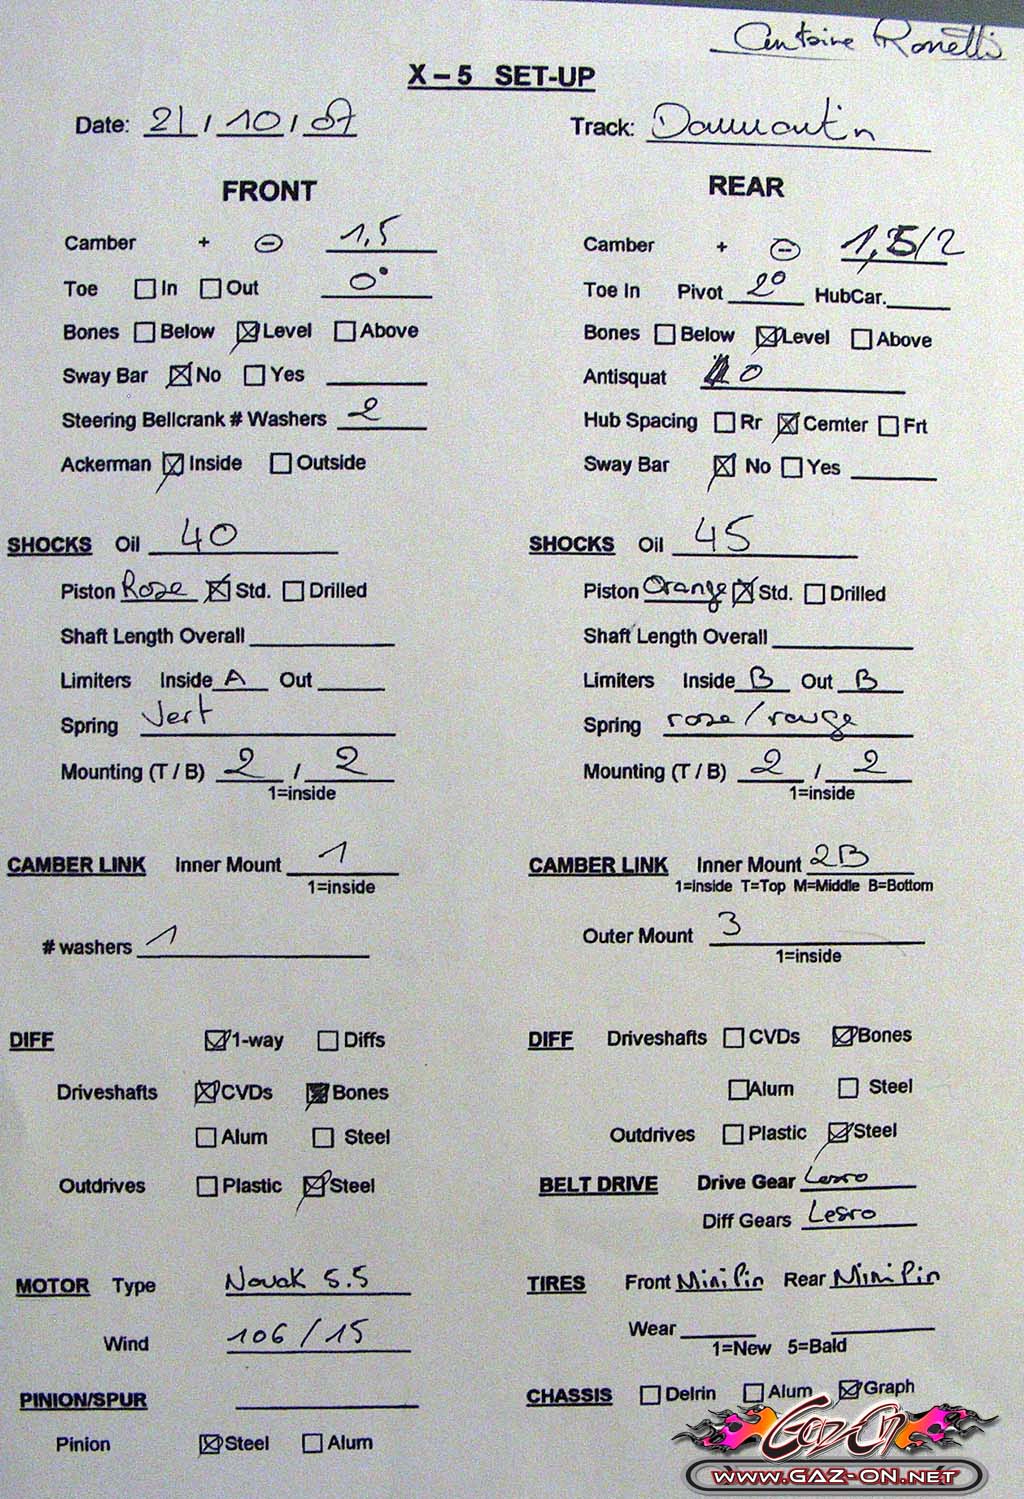 Antoine Ronetti
X – 5 SET-UP
Date: 21 / 10 / 07 Track: Dammartin
FRONT
Camber + - 1,5
Toe In Out 0°
Bones Below Level Above
Sway Bar No Yes
Steering Bellcrank # Washers 2
Ackerman Inside Outside
REAR
Camber + - 1,5/2
Toe In Pivot 2° HubCar.
Bones Below Level Above
Antisquat 0
Hub Spacing Rr Cemter Frt
Sway Bar No Yes
SHOCKS Oil 40
Piston Rose Std. Drilled
Shaft Length Overall
Limiters Inside A Out
Spring Vert
Mounting (T / B) 2 / 2
1=inside
SHOCKS Oil 45
Piston Orange Std. Drilled
Shaft Length Overall
Limiters Inside B Out B
Spring rose/rouge
Mounting (T / B) 2 / 2
1=inside
CAMBER LINK Inner Mount 1
1=inside
# washers 1
CAMBER LINK Inner Mount 2B
1=inside T=Top M=Middle B=Bottom
Outer Mount 3
1=inside
DIFF 1-way Diffs
Driveshafts CVDs Bones
Alum Steel
Outdrives Plastic Steel
DIFF Driveshafts CVDs Bones
Alum Steel
Outdrives Plastic Steel
BELT DRIVE Drive Gear Lesro
Diff Gears Lesro
MOTOR Type Novak 5.5
Wind 106 / 15
PINION/SPUR
Pinion Steel Alum
TIRES Front Mini Pin Rear Mini Pin
Wear
1=New 5=Bald
CHASSIS Delrin Alum Graph
GazOn
www.GAZ-ON.NET